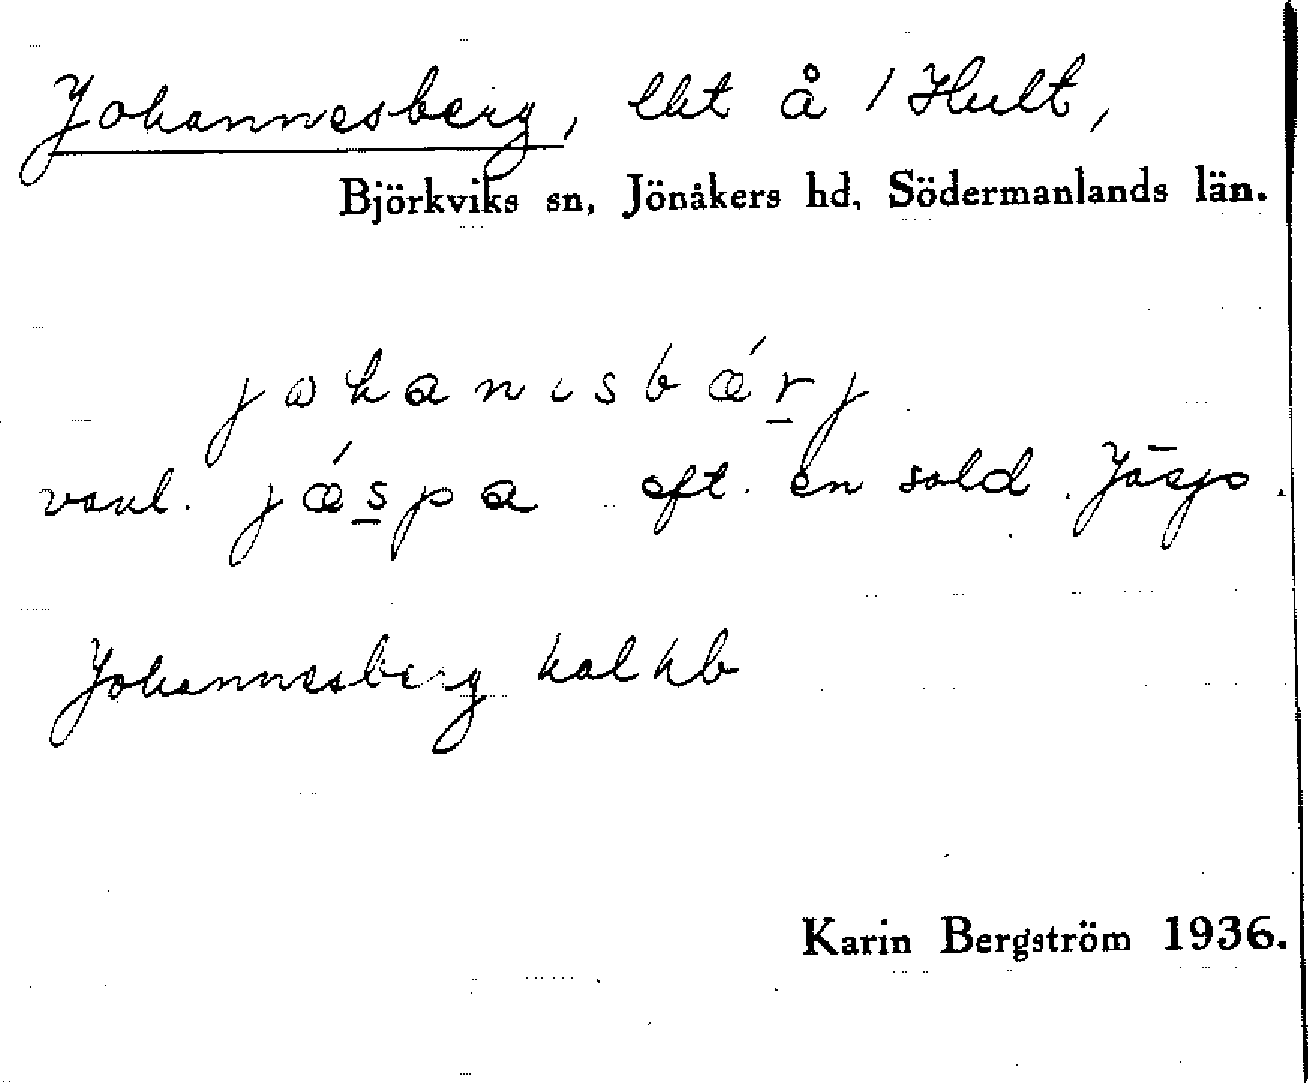 Johannesberg, lht å 1 Hult,
Björkviks sn, Jönåkers hd, Södermanlands län.
johanisbǽrj
vanl. jǽspa eft. en sold. Jäsp.
Johannesberg hal hb
Karin Bergström 1936.